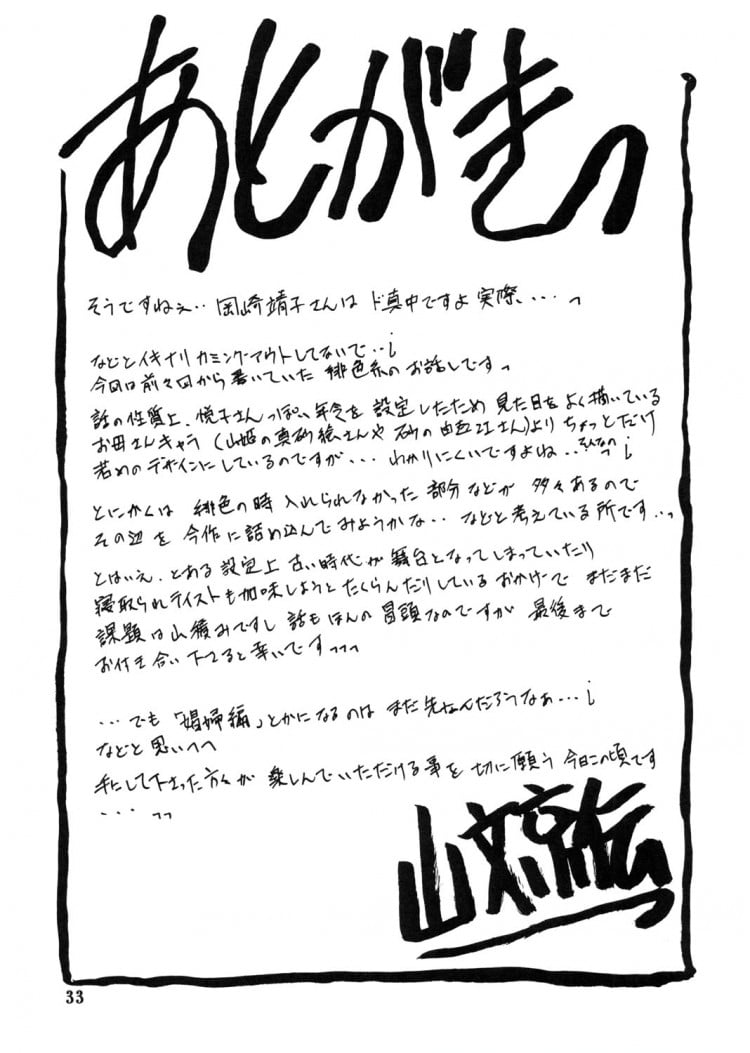 あとがきっ
そうですねぇ‥岡崎靖子さんはド真中ですよ実際、‥‥っ
などとイキナリカミングアウトしてないで…¡
今回は前々回から書いていた緋色系のお話しですっ
話の性質上、悦子さんっぽい年令を設定したため見た目をよく描いている
お母さんキャラ(山姫の真砂絵さんや砂の由乃江さん)よりちょっとだけ
若めのデザインにしているのですが...わかりにくいですよね‥そんなのっ¡
とにかくは緋色の時入れられなかった部分などが多々あるので
その辺を今作に詰め込んでみようかな‥などと考えている所です…っ
とはいえ、とある設定上古い時代が舞台となってしまっていたり
寝取られテイストも加味しようとたくらんだりしているおかげでまだまだ
課題は山積みですし話もほんの冒頭なのですが最後まで
お付き合い下さると幸いですっっっ
...でも「娼婦編」とかになるのはまだ先なんだろうなぁ...¡
などと思いつつ
手にして下さった方々が楽しんでいただける事を切に願う今日この頃です
...っっ
山文京伝っ
33